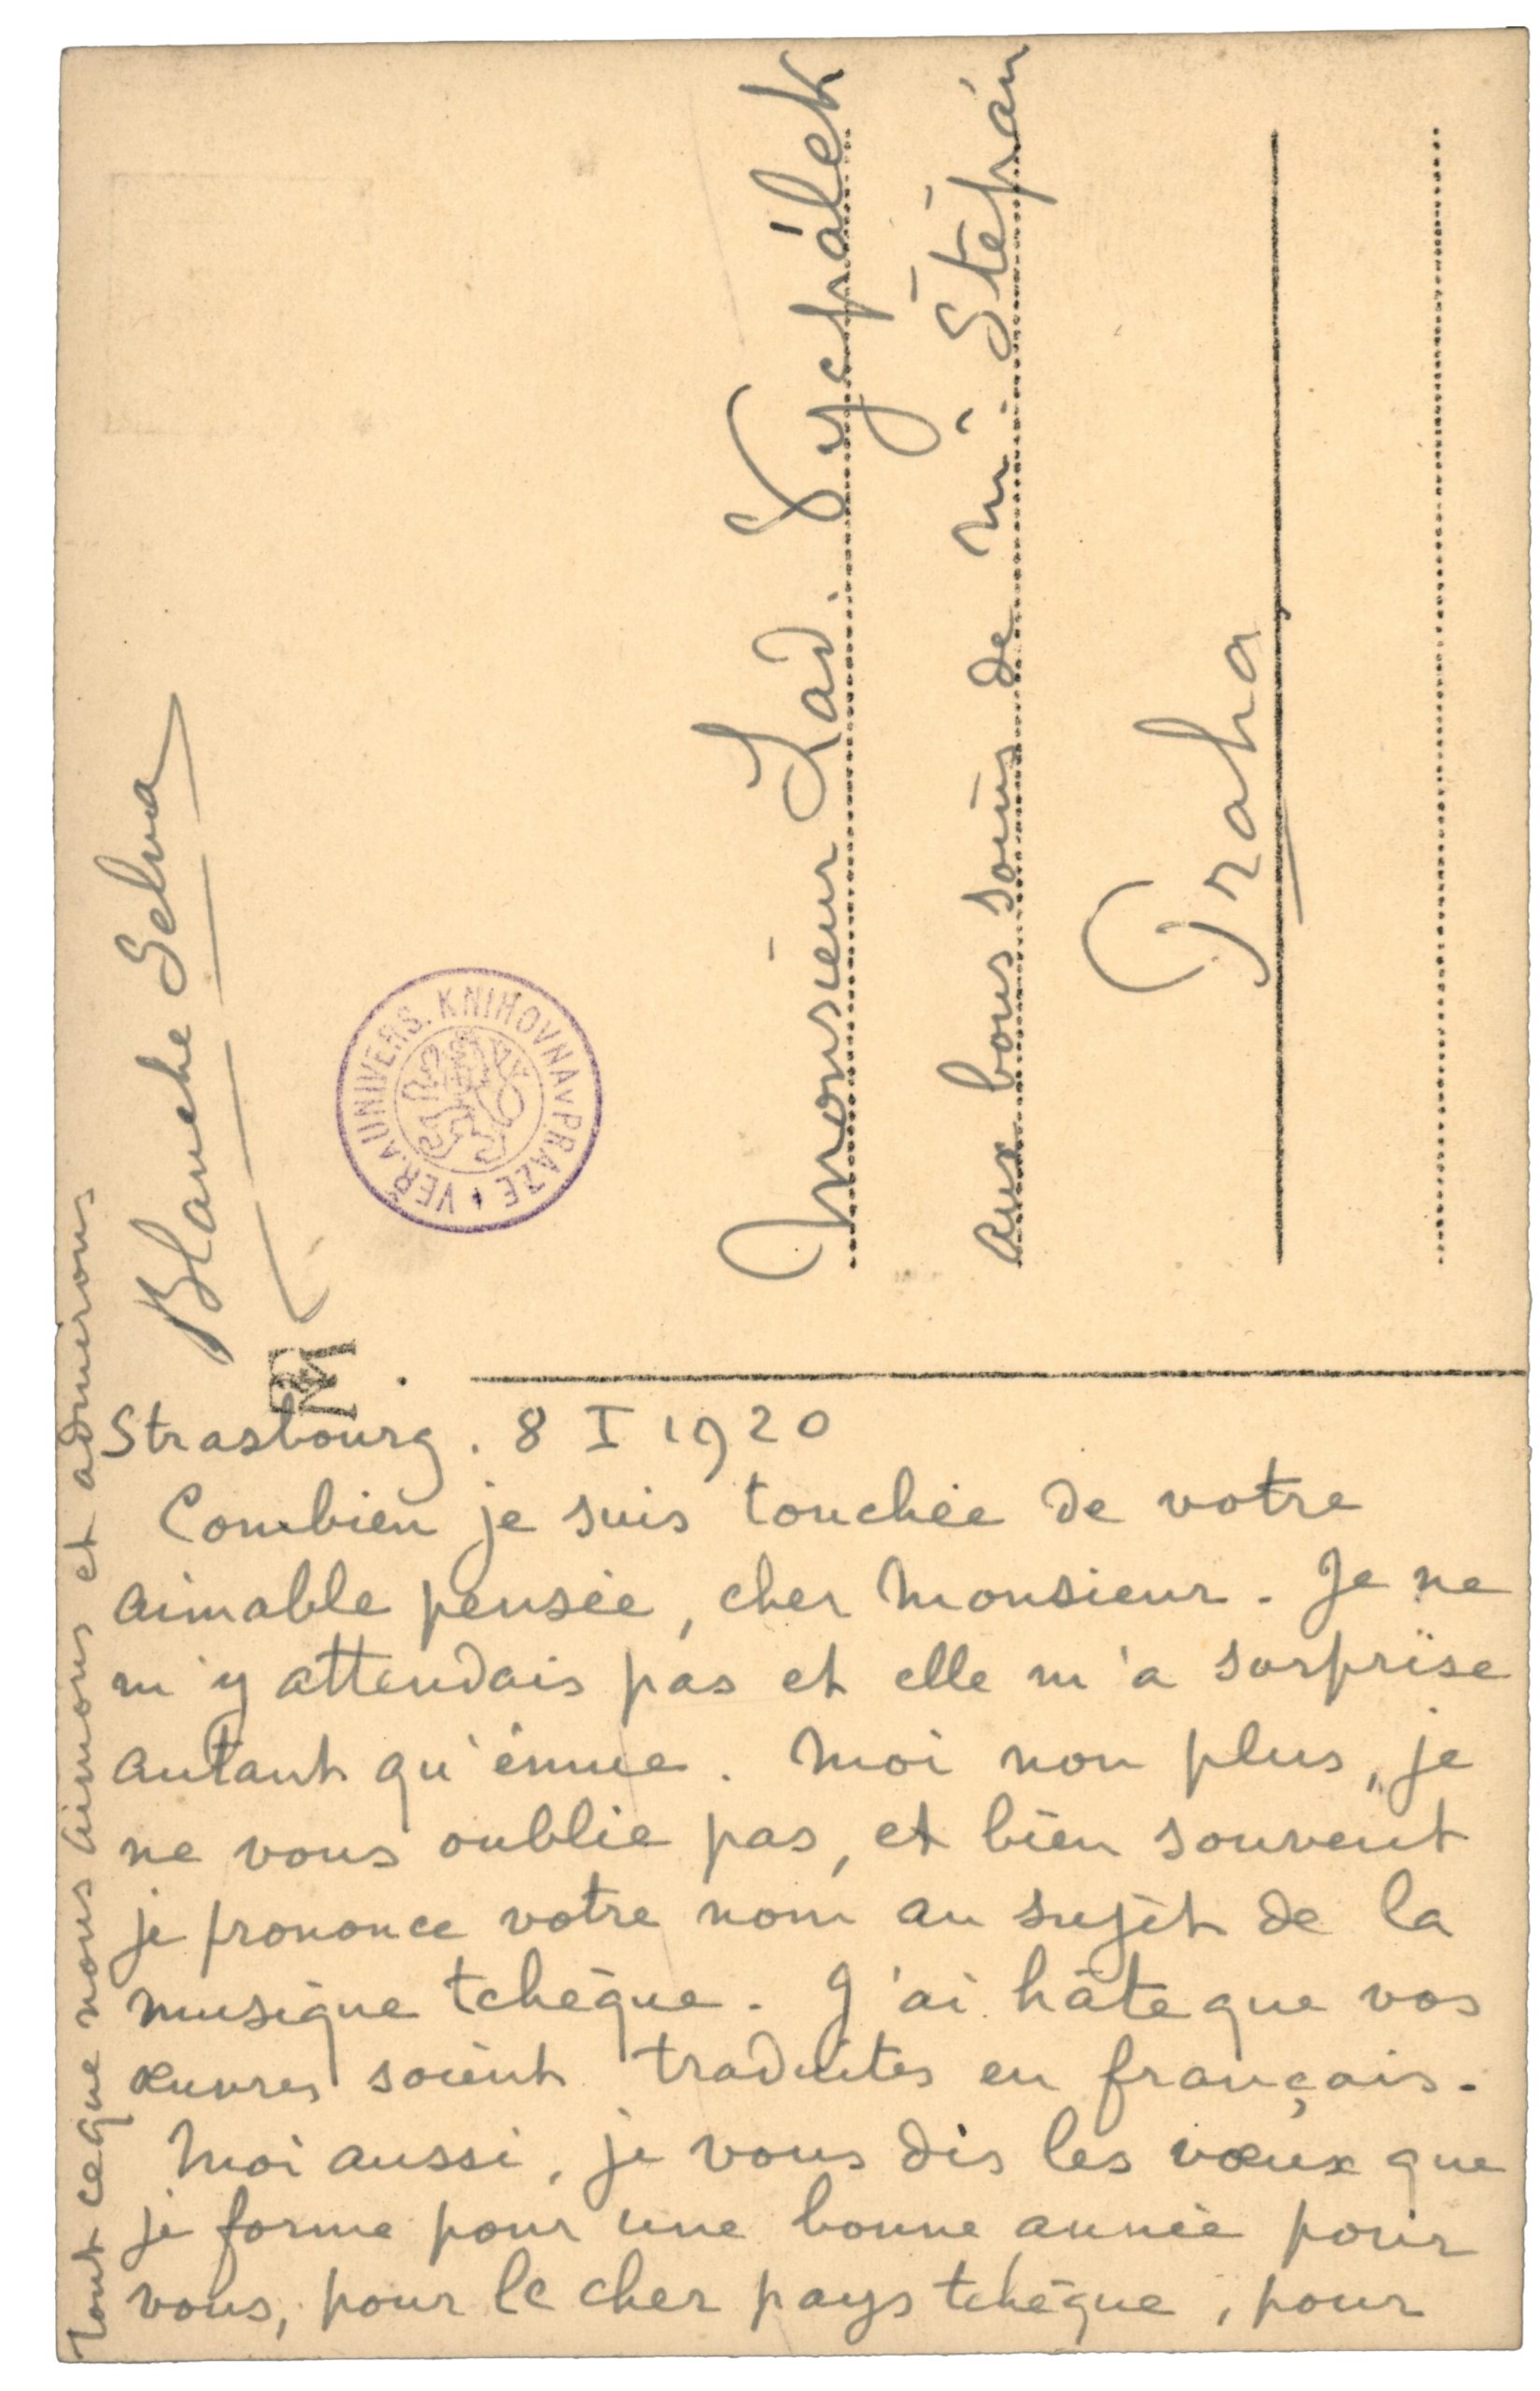 Strasbourg. 8 I 1920
Combien je suis touchée de votre
aimable pensée, cher Monsieur. Je ne
m'y attendais pas et elle m'a surprise
autant qu'émue. Moi non plus, je
ne vous oublie pas, et bien souvent
je prononce votre nom au sujet de la
musique tchèque. J'ai hâte que vos
œuvres soient traduites en français.
Moi aussi, je vous dis les vœux que
je forme pour une bonne année pour
vous, pour le cher pays tchèque, pour
tout ce que nous aimons et admirons
Blanche Selva
Monsieur Lad. Vycpálek
aux bons soins de Mr. Štěpán
Praha
VEŘ. A UNIVERS. KNIHOVNA V PRAZE